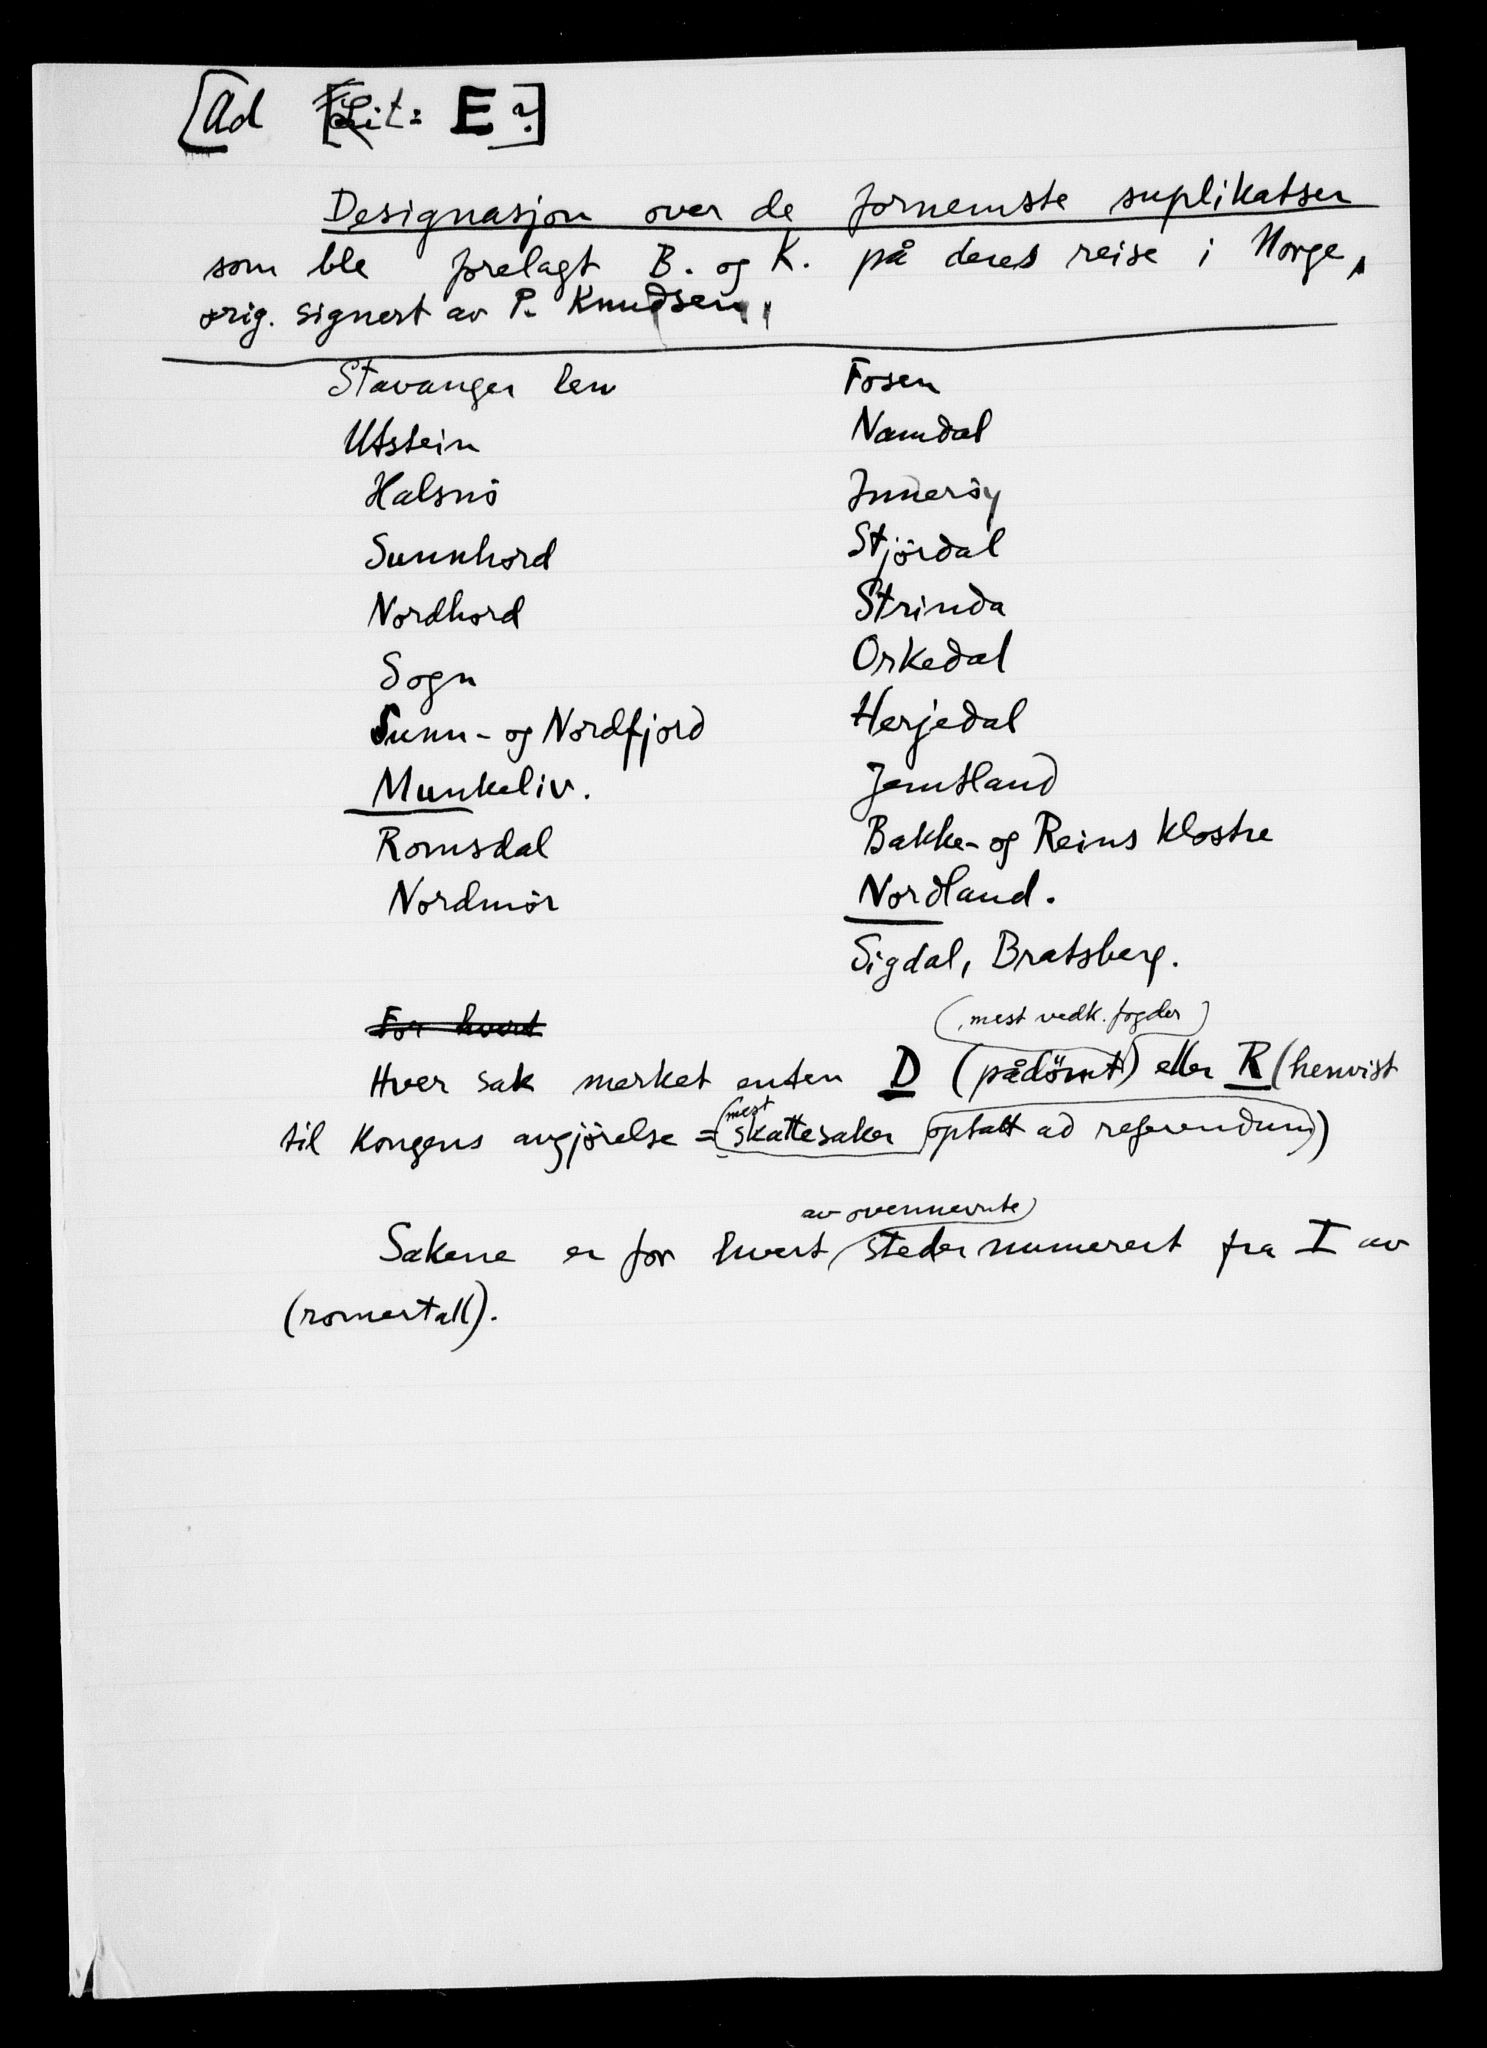 [Ad Lit: E?]
Designasjon over de fornemste suplikatser
som ble forelagt B. og K. på deres reise i Norge,
orig. signert av P. Knudsen,
Stavanger len
Utstein
Halsnö
Sunnhord
Nordhord
Sogn
Sunn- og Nordfjord
Munkeliv.
Romsdal
Nordmör
Fosen
Namdal
Inneröy
Stjördal
Strinda
Orkedal
Herjedal
Jemtland
Bakke- og Reins klostre
Nordland.
Sigdal, Bratsberg.
For hvert
(mest vedk. fogder)
Hver sak merket enten D (pådömt) eller R (henvist
til Kongens avgjörelse = mest skattesaker optatt ad referendum)
av ovennevnte
Sakene er for hvert steder numerert fra I av
(romertall).